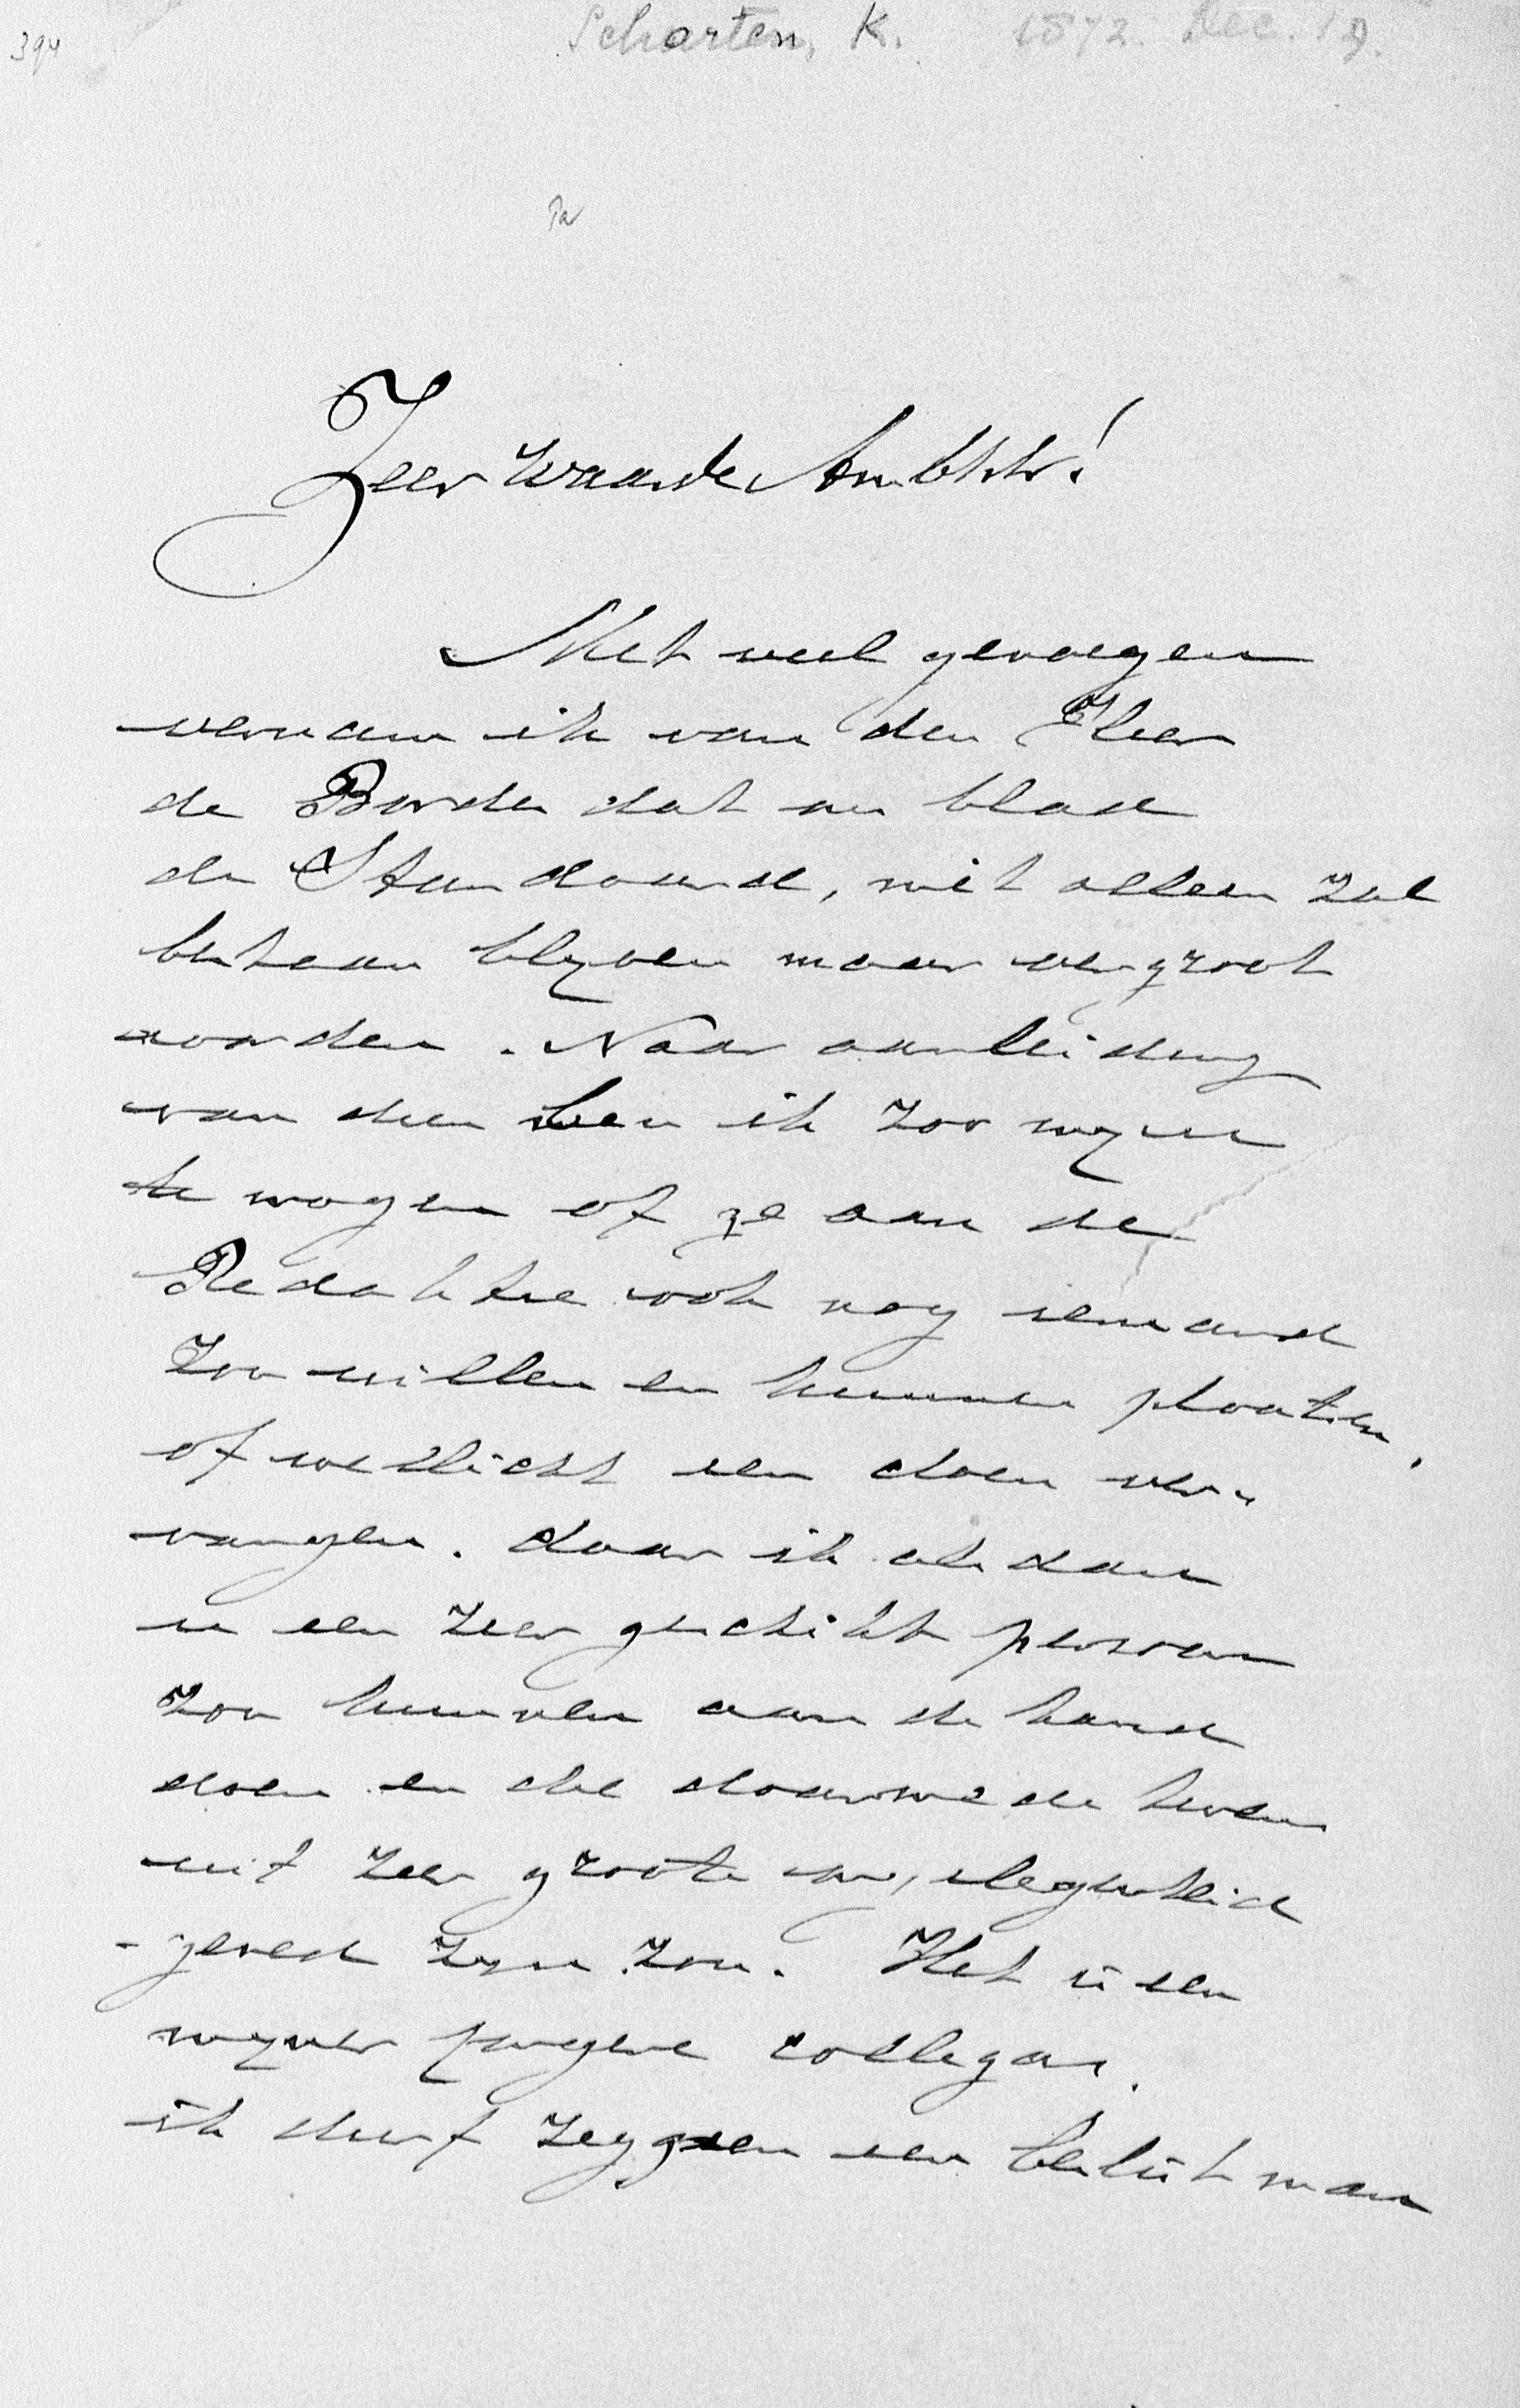 394
Scharten, K. 1872. Dec. 19.
Zeer Waarde Ambtbr!
Met veel genoegen
vernam ik van den Heer
de Border dat uw blad
de Standaard, niet alleen zal
bestaan blyven maar vergroot
worden. Naar aanleiding
van dien ben ik zoo vry u
te vragen of ge aan de
Redaktie ook nog iemand
zou willen en kunnen plaatsen,
of wellicht een doen ver-
vangen. daar ik als dan
u een zeer geschikt persoon
zou kunnen aan de hand
doen en die daarmede tevens
uit zeer groote verlegenheid
gered zyn zou. Het is een
myner jongere collegas,
ik durf zeggen een beslist man